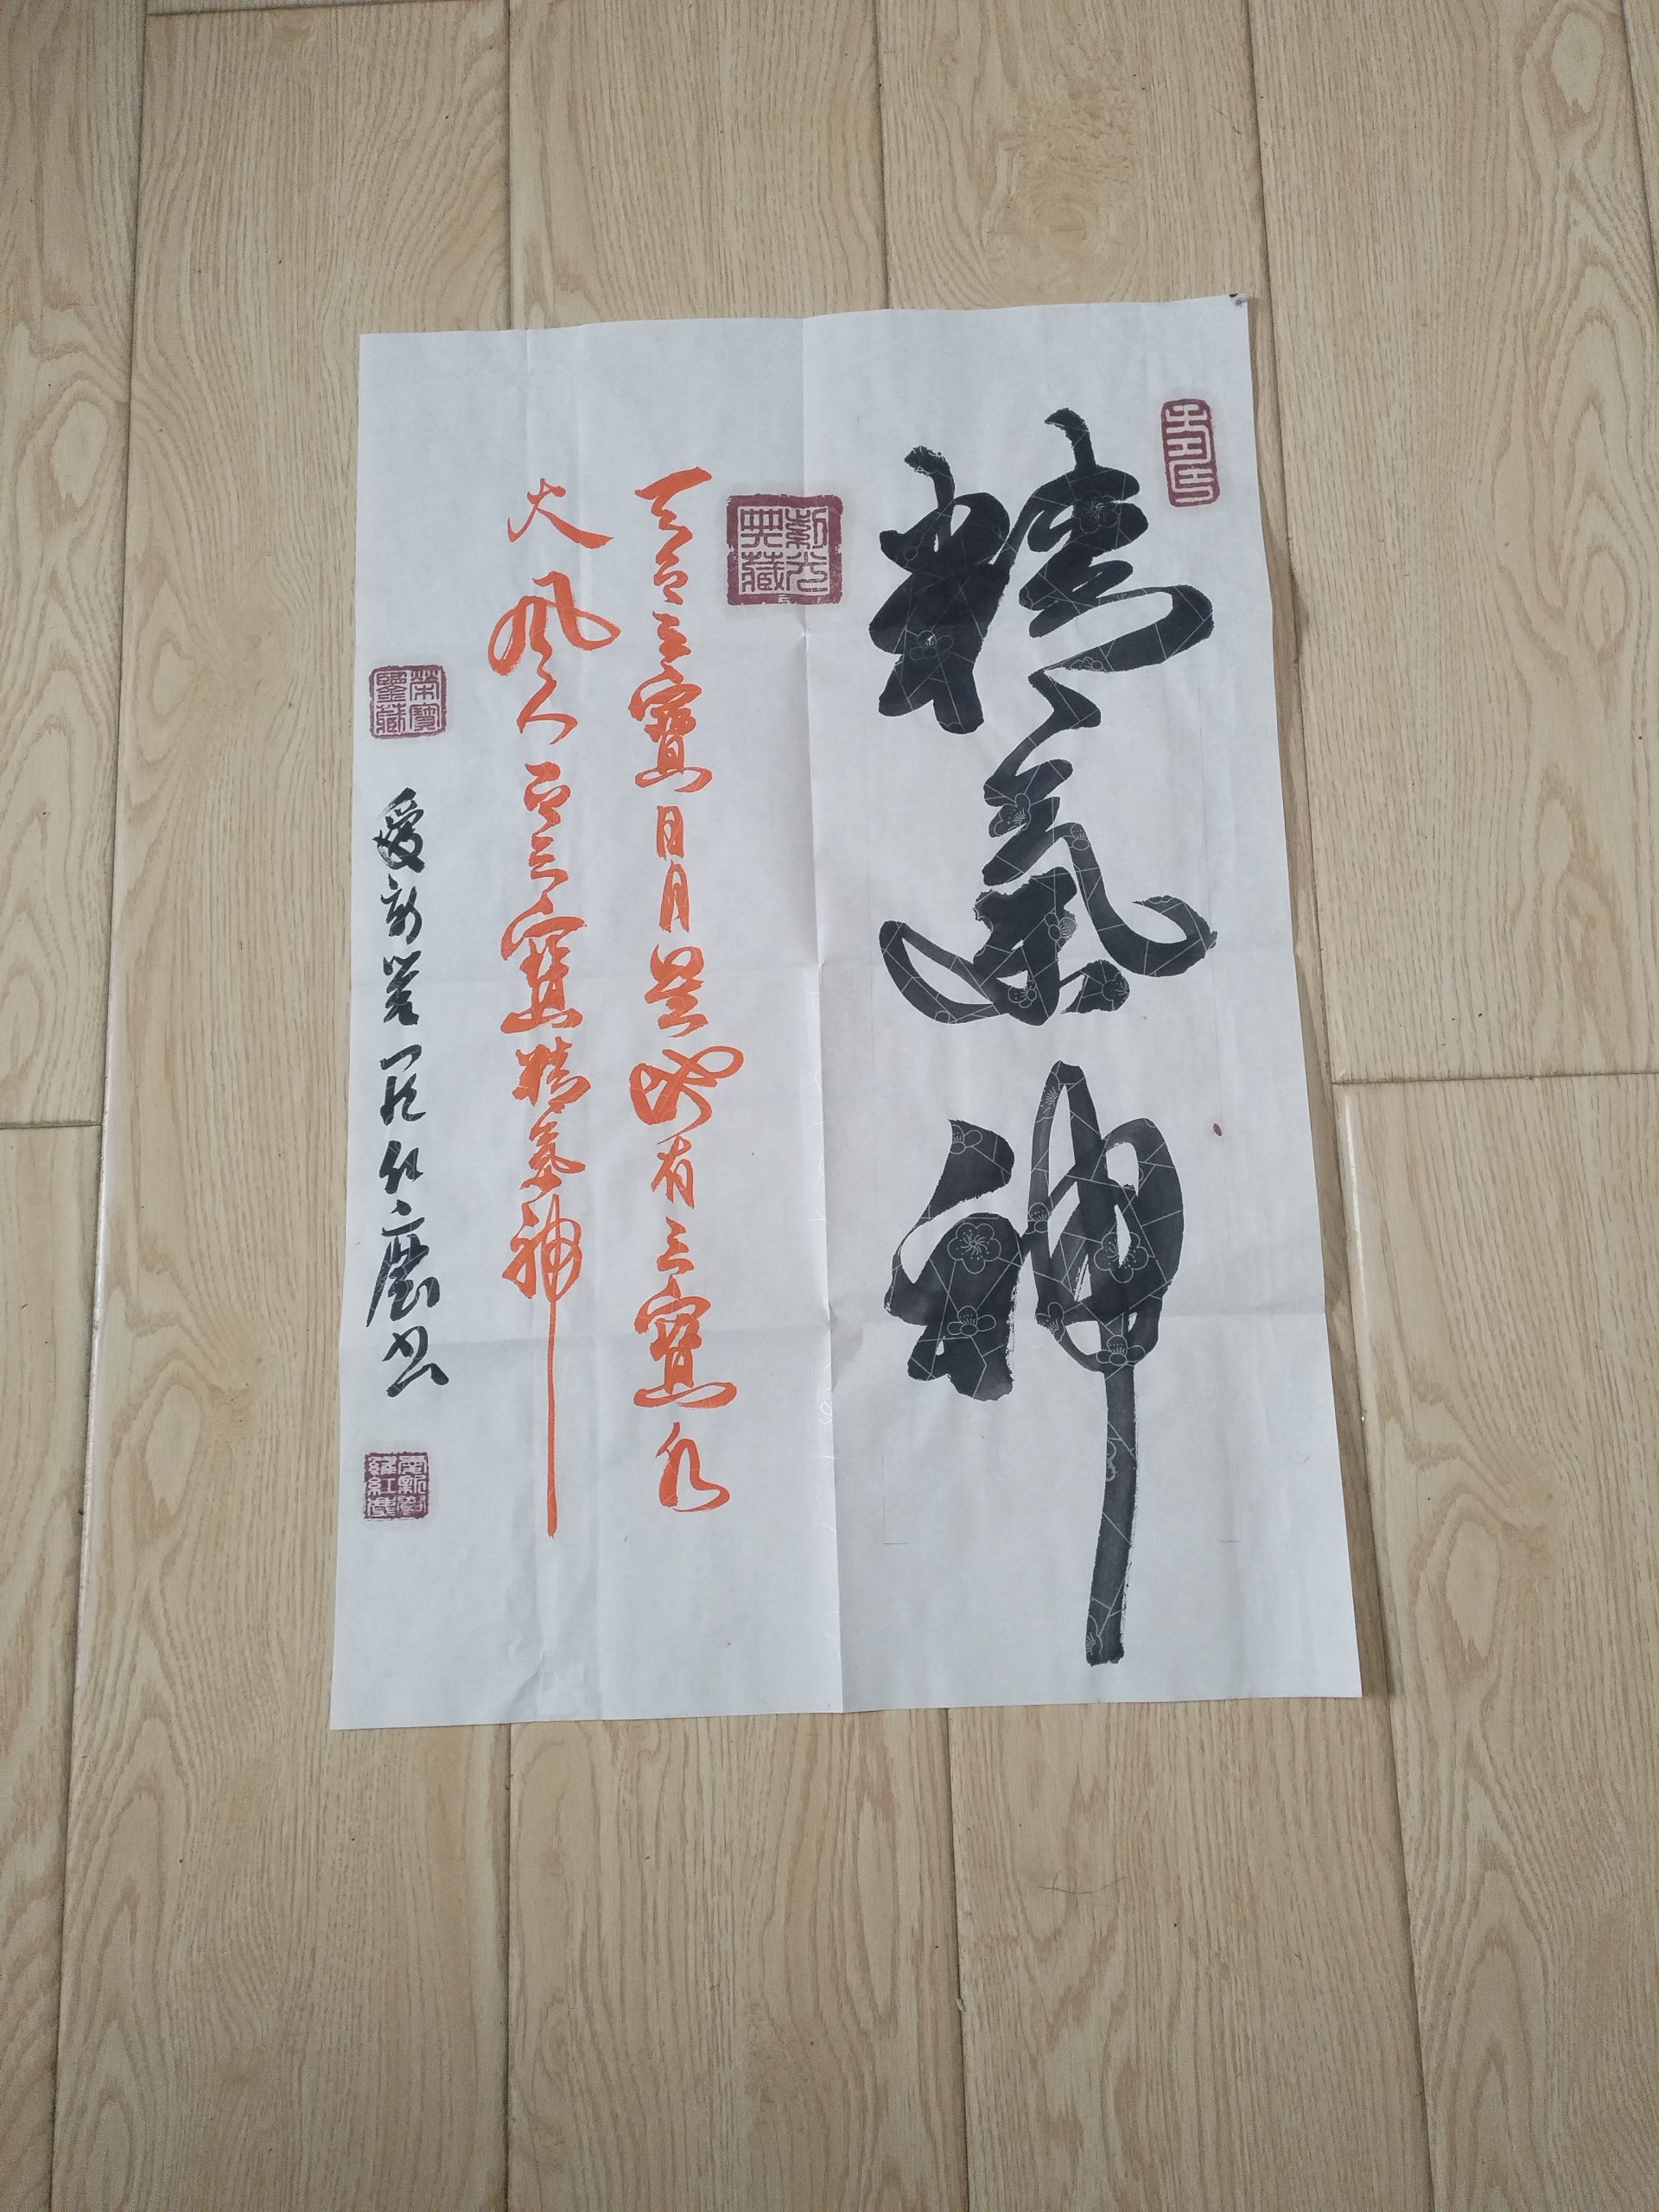 精氣神
典藏
天有三寶日月星地有三寶水
火風人有三寶精氣神
榮寶鑒藏
愛新覺羅書